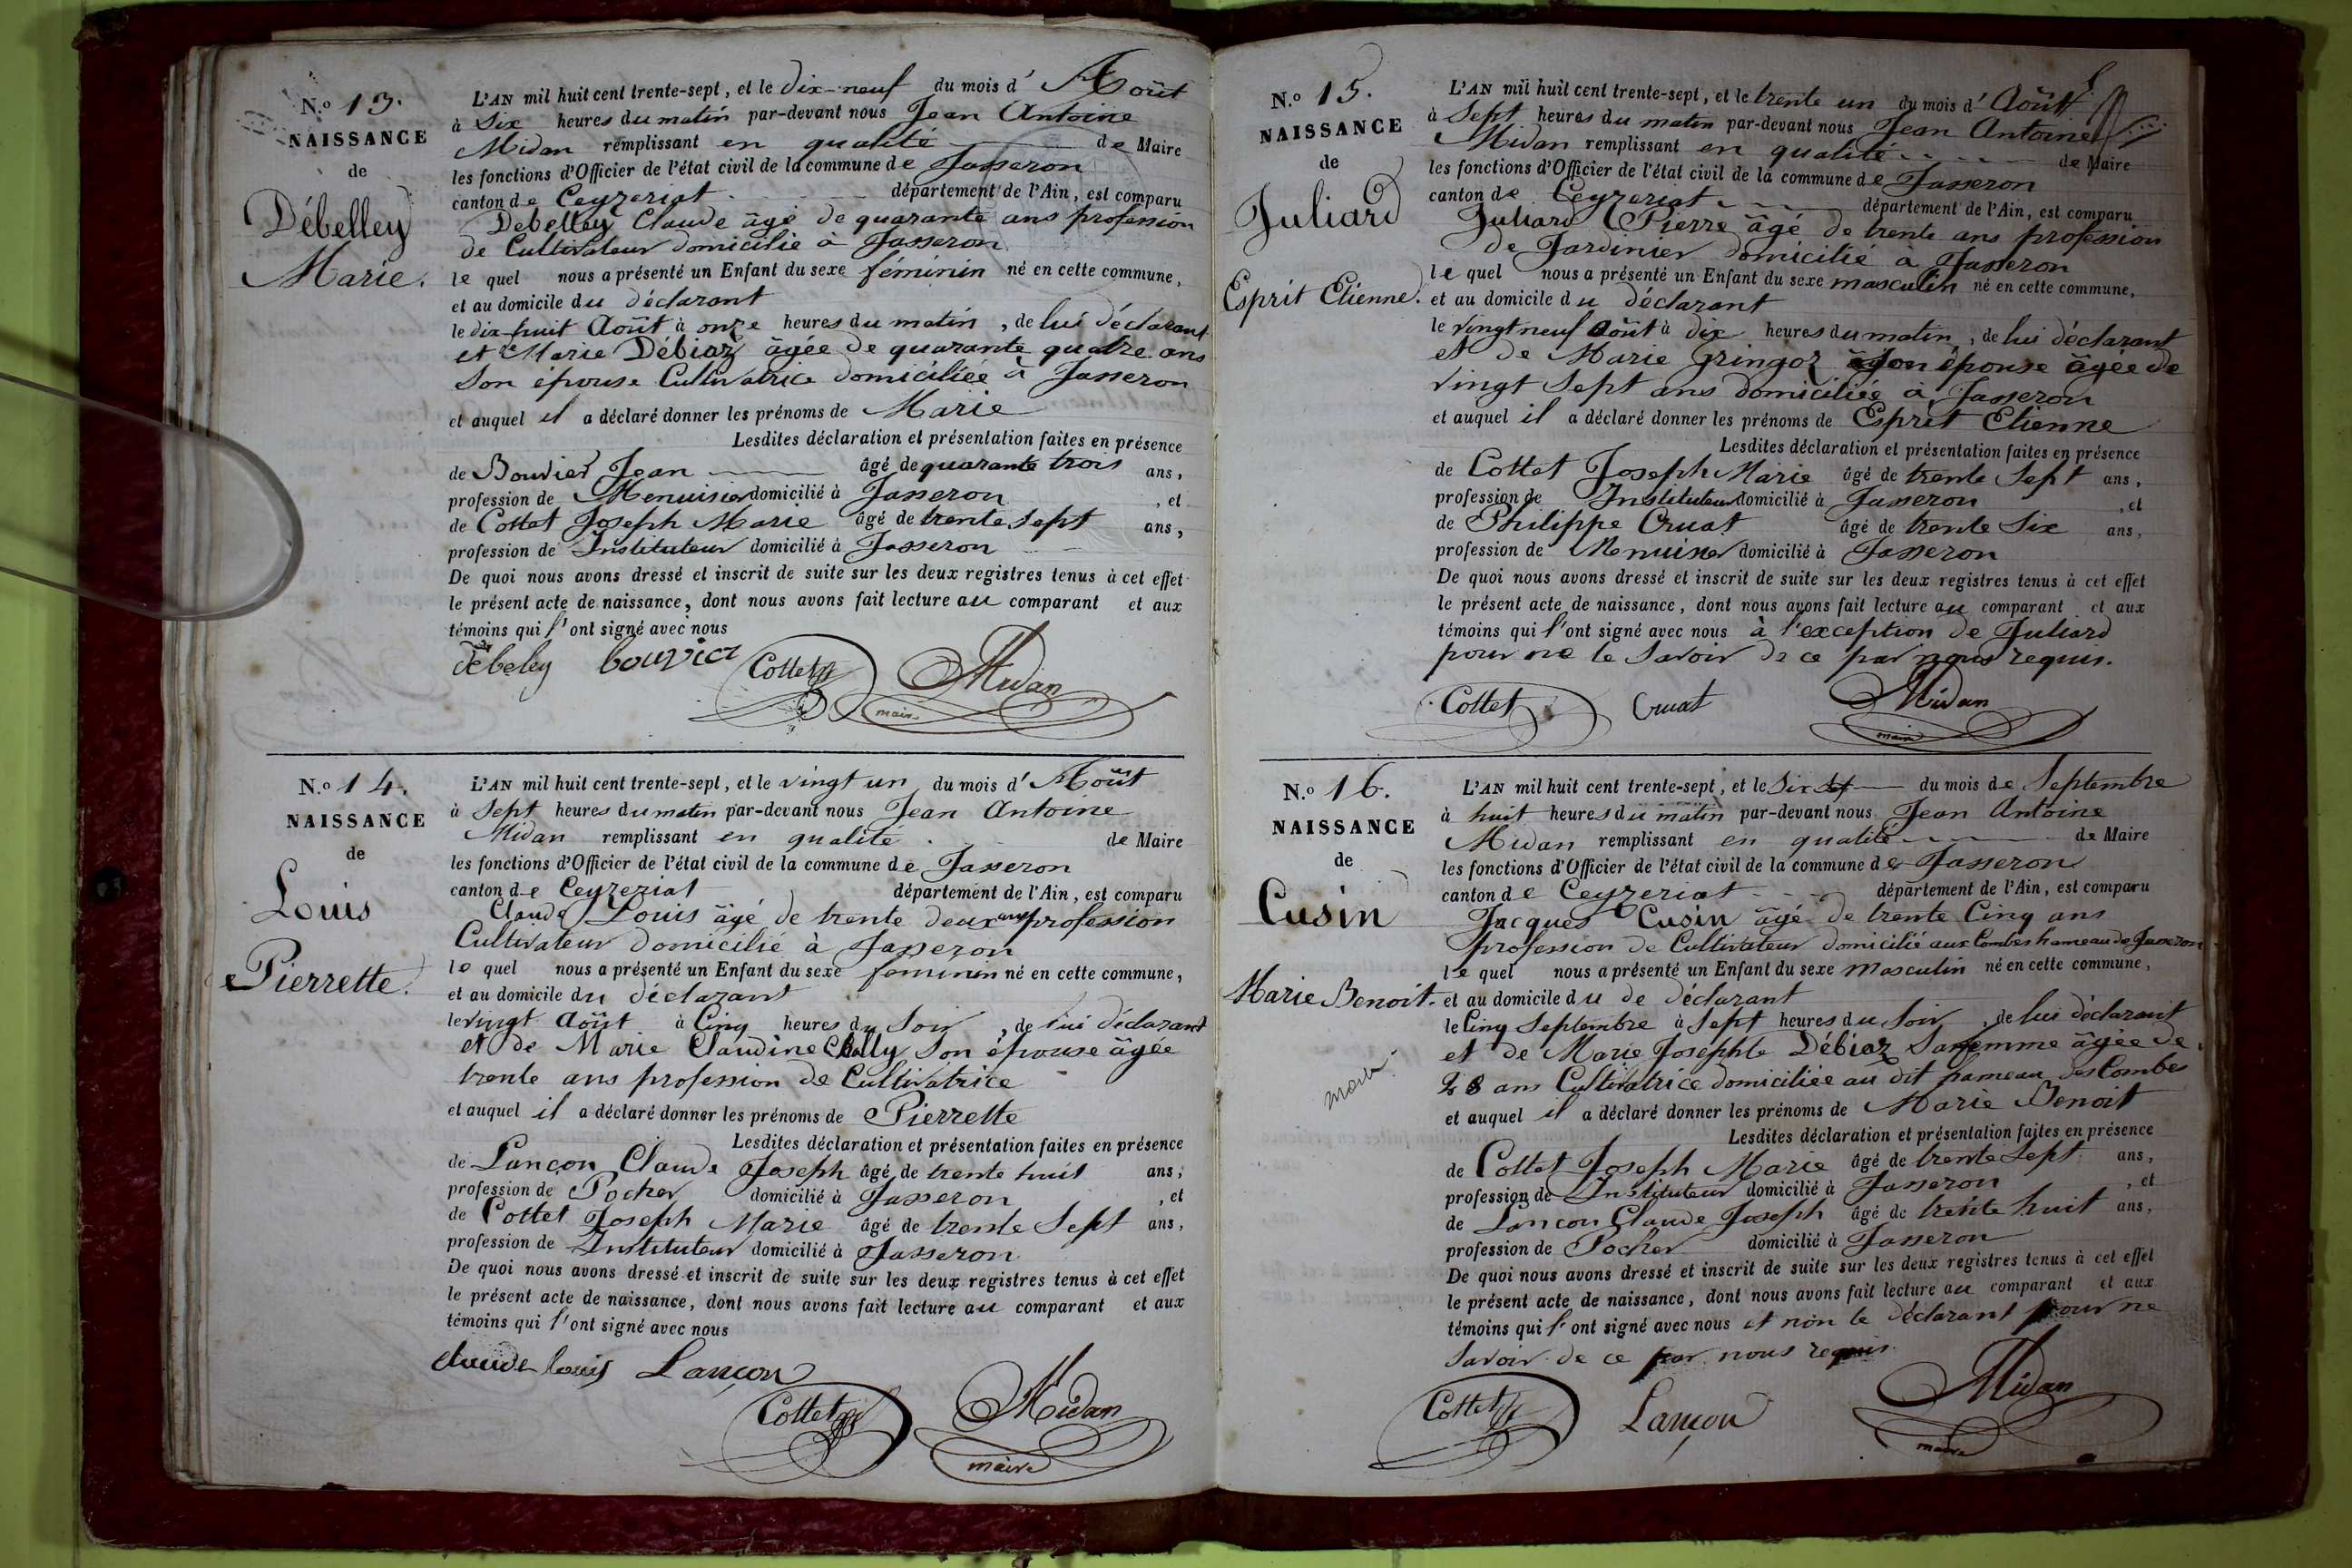 N.o 13.
NAISSANCE
de
Débelley
Marie.
L'AN mil huit cent trente-sept, et le dix-neuf du mois d' Août
à Six heures du matin par-devant nous Jean Antoine
Midan remplissant en qualité de Maire
les fonctions d'Officier de l'état civil de la commune de Jasseron
canton de Ceyzeriat département de l'Ain, est comparu
Debelley Claude âgé de quarante ans profession
de Cultivateur domicilié à Jasseron
le quel nous a présenté un Enfant du sexe féminin né en cette commune,
et au domicile du déclarant
le dix-huit Août à onze heures du matin, de lui déclarant
et de Marie Débiaz âgée de quarante quatre ans
Son épouse Cultivatrice domiciliée à Jasseron
et auquel il a déclaré donner les prénoms de Marie
Lesdites déclaration et présentation faites en présence
de Bouvier Jean âgé de quarante trois ans,
profession de Menuisier domicilié à Jasseron, et
de Cottet Joseph Marie âgé de trente Sept ans,
profession de Instituteur domicilié à Jasseron
De quoi nous avons dressé et inscrit de suite sur les deux registres tenus à cet effet
le présent acte de naissance, dont nous avons fait lecture au comparant et aux
témoins qui l'ont signé avec nous
débeley bouvier Cottet Midan
maire
N.o 14.
NAISSANCE
de
Louis
Pierrette.
L'AN mil huit cent trente-sept, et le vingt un du mois d' Août
à Sept heures du matin par-devant nous Jean Antoine
Midan remplissant en qualité de Maire
les fonctions d'Officier de l'état civil de la commune de Jasseron
canton de Ceyzeriat département de l'Ain, est comparu
Claude Louis âgé de trente deux ans profession
Cultivateur domicilié à Jasseron
le quel nous a présenté un Enfant du sexe féminin né en cette commune,
et au domicile du déclarant
le vingt Août à Cinq heures du Soir, de lui déclarant
et de Marie Claudine Son épouse âgée
trente ans profession de Cultivatrice
et auquel il a déclaré donner les prénoms de Pierrette
Lesdites déclaration et présentation faites en présence
de Lançon Claude Joseph âgé de trente huit ans,
profession de Pocher domicilié à Jasseron, et
de Cottet Joseph Marie âgé de trente Sept ans,
profession de Instituteur domicilié à Jasseron
De quoi nous avons dressé et inscrit de suite sur les deux registres tenus à cet effet
le présent acte de naissance, dont nous avons fait lecture au comparant et aux
témoins qui l'ont signé avec nous
claude louis Lançon
Cottet Midan
maire
N.o 15.
NAISSANCE
de
Juliard
Esprit Etienne.
L'AN mil huit cent trente-sept, et le trente un du mois d' Août
à Sept heures du matin par-devant nous Jean Antoine
Midan remplissant en qualité de Maire
les fonctions d'Officier de l'état civil de la commune de Jasseron
canton de Ceyzeriat département de l'Ain, est comparu
Juliard Pierre âgé de trente ans profession
de Jardinier domicilié à Jasseron
le quel nous a présenté un Enfant du sexe masculin né en cette commune,
et au domicile du déclarant
le Vingt neuf Août à dix heures du matin, de lui déclarant
et de Marie Gringoz Son épouse âgée de
vingt Sept ans domiciliée à Jasseron
et auquel il a déclaré donner les prénoms de Esprit Etienne
Lesdites déclaration et présentation faites en présence
de Cottet Joseph Marie âgé de trente Sept ans,
profession de Instituteur domicilié à Jasseron, et
de Philippe Cruat âgé de trente Six ans,
profession de Menuisier domicilié à Jasseron
De quoi nous avons dressé et inscrit de suite sur les deux registres tenus à cet effet
le présent acte de naissance, dont nous avons fait lecture au comparant et aux
témoins qui l'ont signé avec nous à l'exception de Juliard
pour ne le Savoir de ce par nous requis.
Cottet Cruat Midan
maire
N.o 16.
NAISSANCE
de
Cusin
Marie Benoit.
L'AN mil huit cent trente-sept, et le Six du mois de Septembre
à huit heures du matin par-devant nous Jean Antoine
Midan remplissant en qualité de Maire
les fonctions d'Officier de l'état civil de la commune de Jasseron
canton de Ceyzeriat département de l'Ain, est comparu
Jacques Cusin âgé de trente Cinq ans
profession de Cultivateur domicilié aux Combes hameau de Jasseron
le quel nous a présenté un Enfant du sexe masculin né en cette commune,
et au domicile du de déclarant
le Cinq Septembre à Sept heures du Soir, de lui déclarant
et de Marie Josephte Débiaz Sa femme âgée de
28 ans Cultivatrice domiciliée au dit hameau des Combes
et auquel il a déclaré donner les prénoms de Marie Benoit
Lesdites déclaration et présentation faites en présence
de Cottet Joseph Marie âgé de trente Sept ans,
profession de Instituteur domicilié à Jasseron, et
de Lançon Claude Joseph âgé de trente huit ans,
profession de Pocher domicilié à Jasseron
De quoi nous avons dressé et inscrit de suite sur les deux registres tenus à cet effet
le présent acte de naissance, dont nous avons fait lecture au comparant et aux
témoins qui l'ont signé avec nous et non le déclarant pour ne
Savoir de ce par nous requis
Cottet Lançon Midan
maire